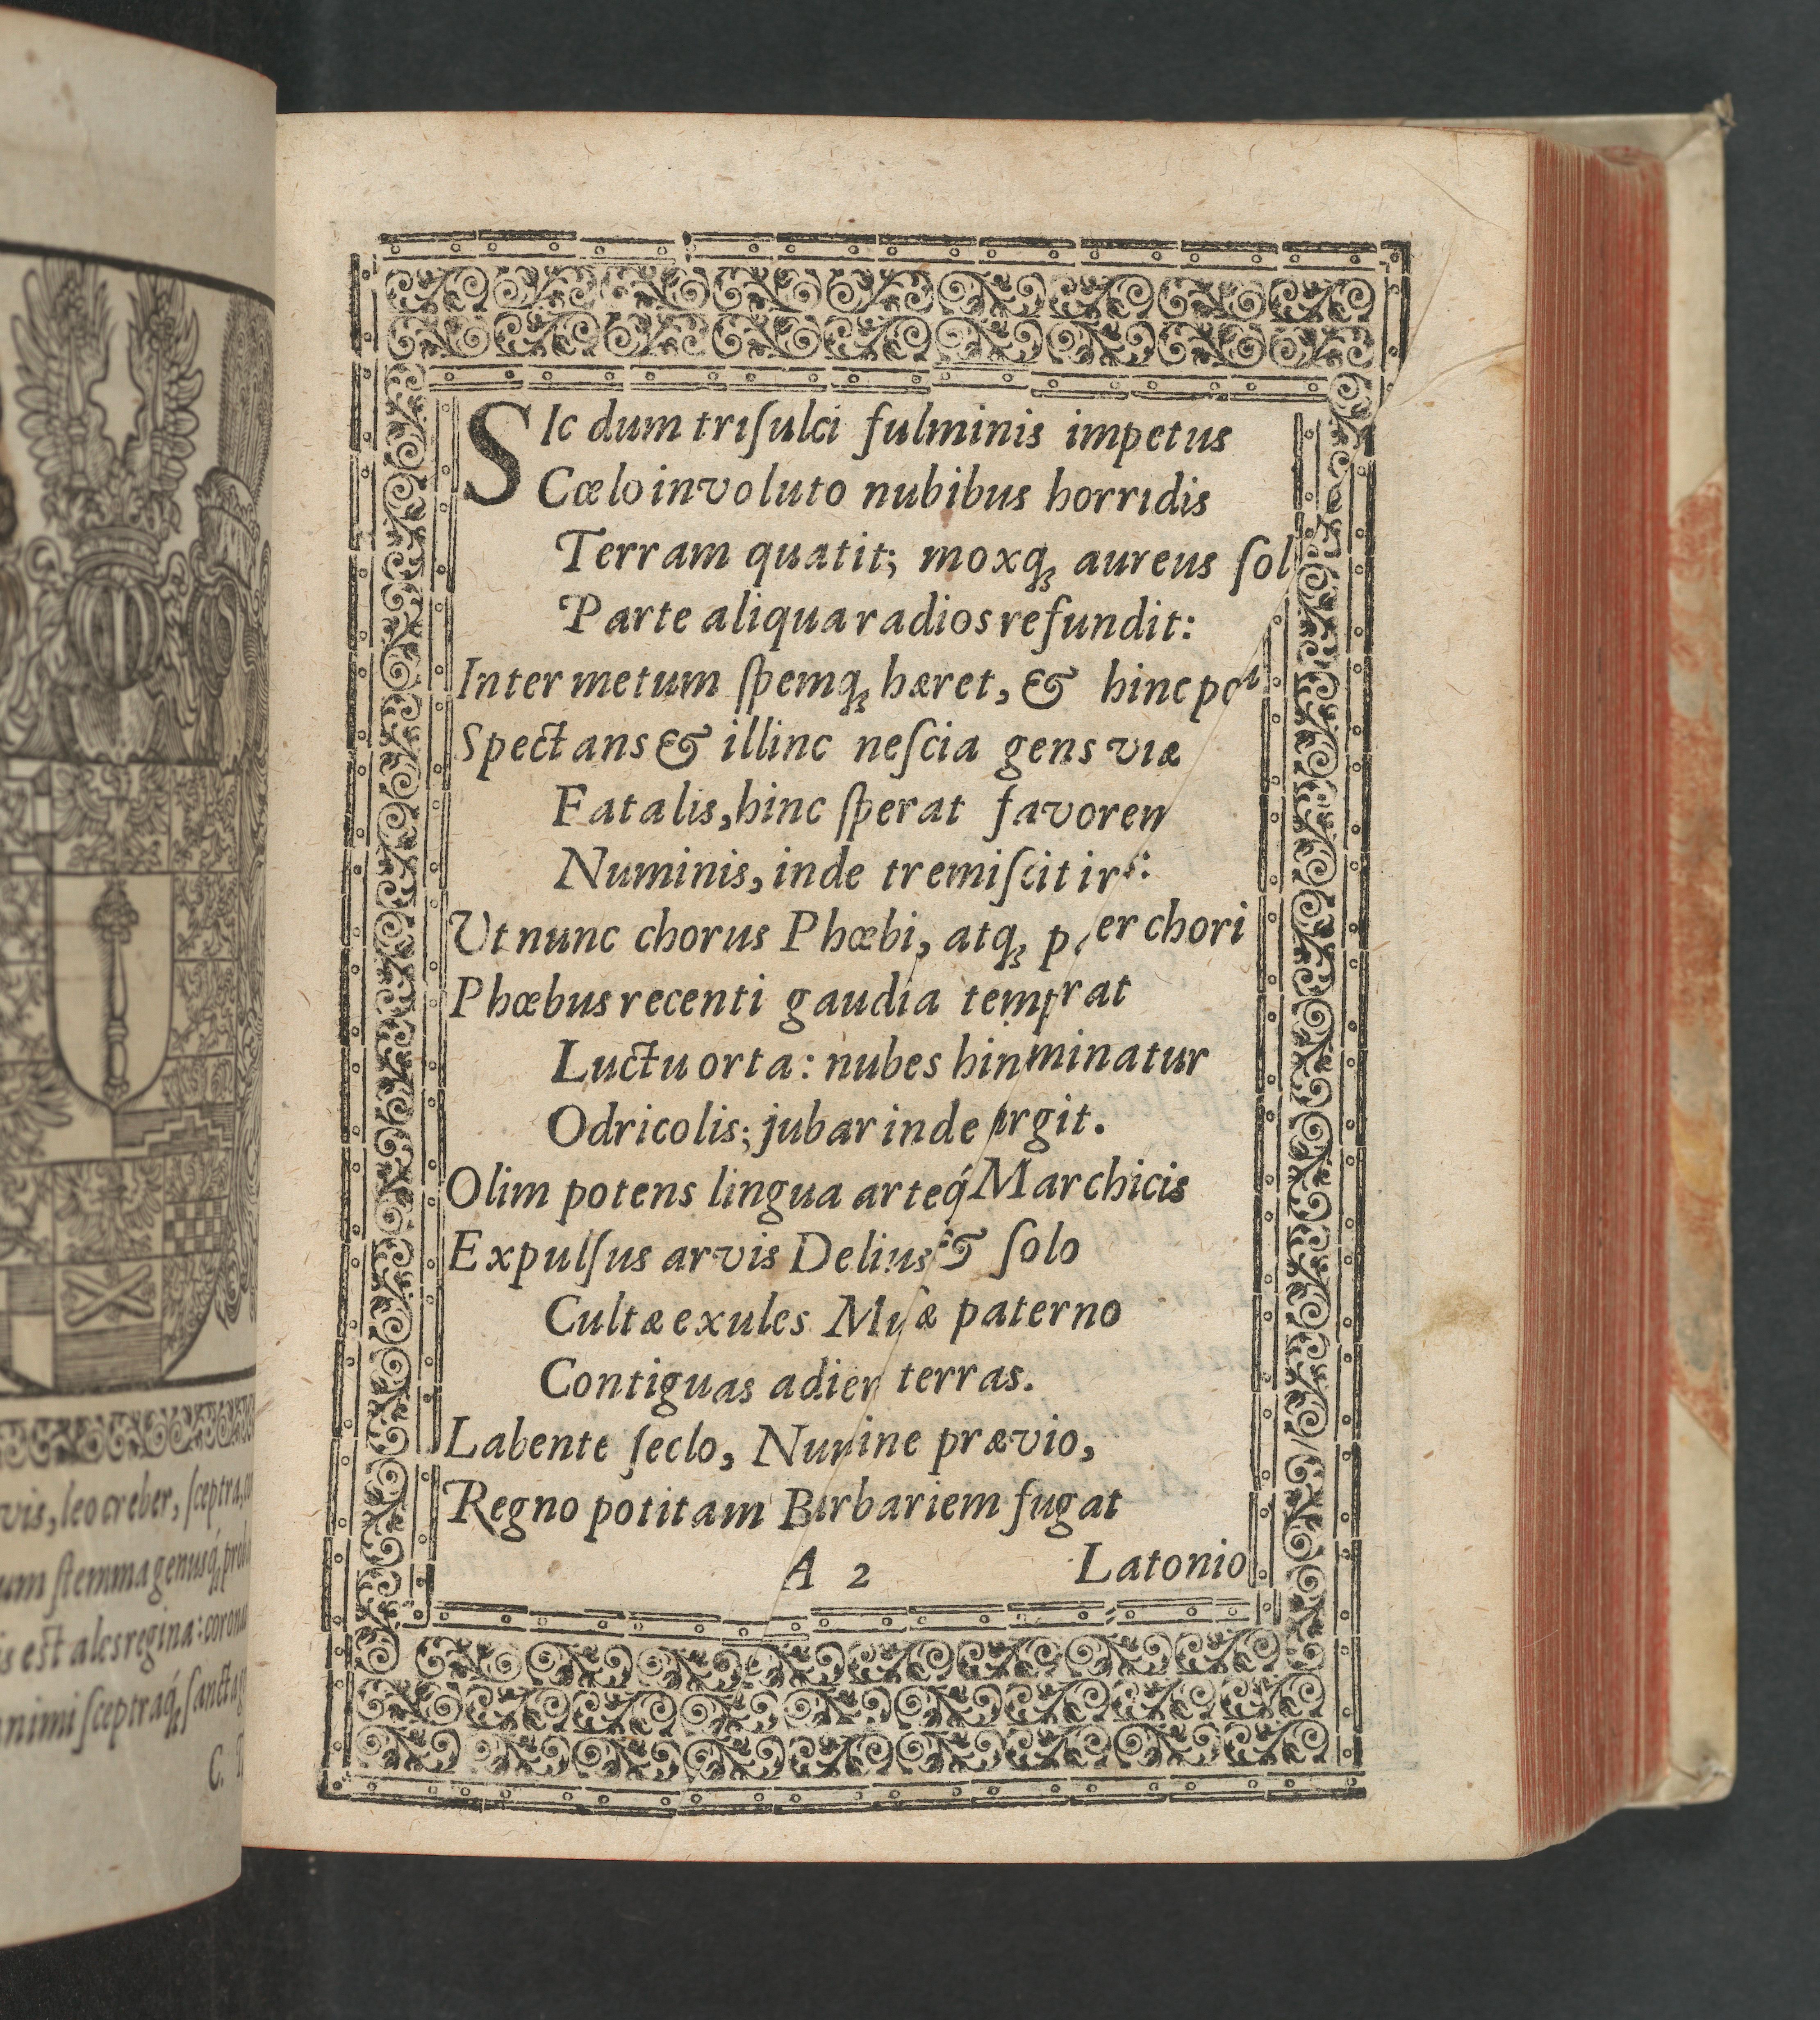 vis, leo creber, ſceptra,
um ſtemma genusq́;
is est ales regina: coron
animi ſceptraq́; ſancta
C.
SIc dum triſulci fulminis impetus
Cœlo involuto nubibus horridis
Terram quatit; moxq; aureus ſol
Parte aliqua radios refundit:
Inter metum ſpemq; hæret, & hinc
Spectans & illinc neſcia gens viæ
Fatalis, hinc ſperat favorem
Numinis, inde tremiſcit
Ut nunc chorus Phœbi, atq; p er chori
Phœbus recenti gaudia temp rat
Luctu orta: nubes hin minatur
Odricolis; jubar inde rgit.
Olim potens lingua arteq́ Marchicis
Expulſus arvis Delius & ſolo
Cultæ exules Muſæ paterno
Contiguas adier terras.
Labente ſeclo, Numine prævio,
Regno potitam Barbariem fugat
A 2
Latonio